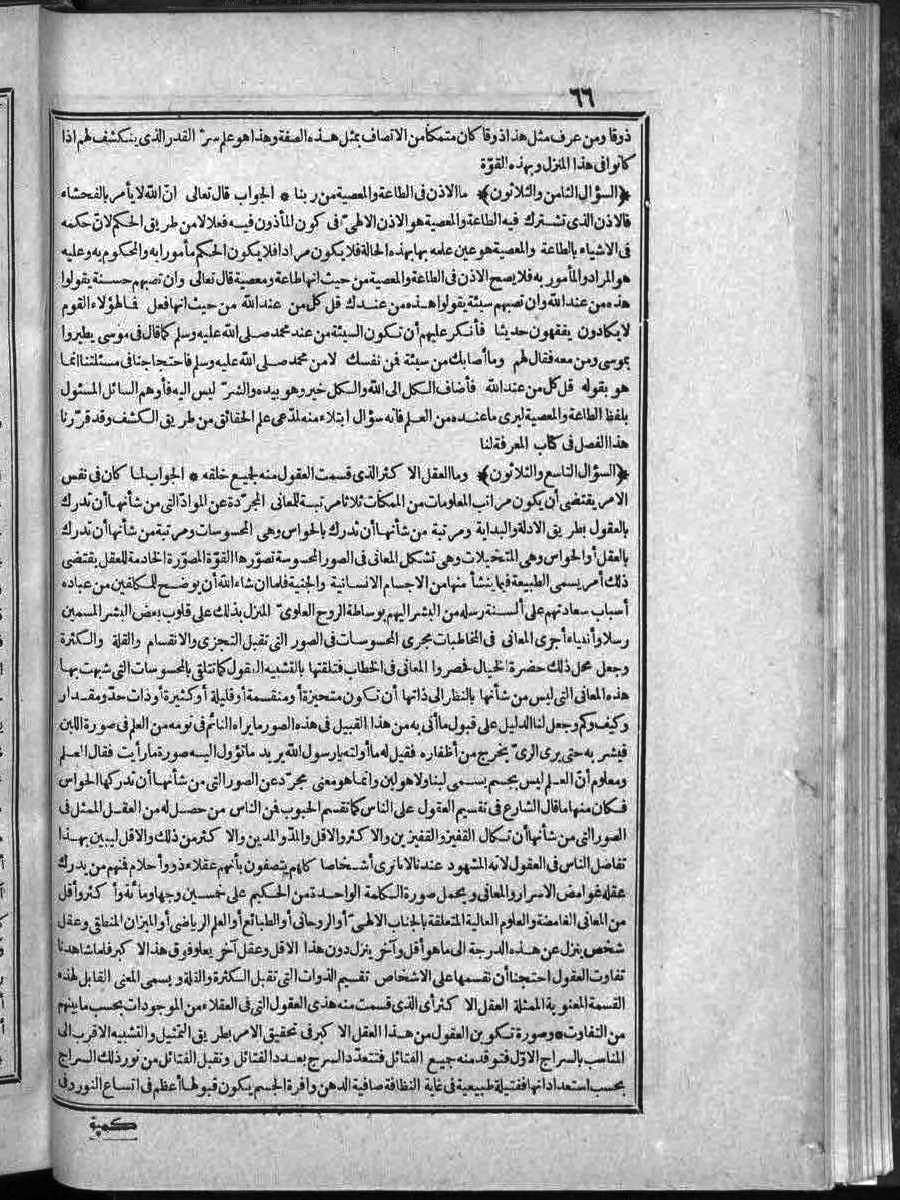 ٦٦
ذوقا ومن عرف مثل هذا ذوقا كان متمكنا من الاتصاف بمثل هذه الصفة وهذا هو علم سرّ القدر الذى ينكشف لهم اذا
كانوا فى هذا المنزل وبهذه القوّة
﴿السؤال الثامن والثلاثون﴾ ما الاذن فى الطاعة والمعصية من ربنا * الجواب قال تعالى انّ الله لا يأمر بالفحشاء
فالاذن الذى تشترك فيه الطاعة والمعصية هو الاذن الالهىّ فى كون المأذون فيه فعلا لا من طريق الحكم لانّ حكمه
فى الاشياء بالطاعة والمعصية هو عين علمه بها بهذه الحالة فلا يكون مرادا فلا يكون الحكم مأمورا به والمحكوم به وعليه
هو المراد والمأمور به فلا يصح الاذن فى الطاعة والمعصية من حيث انها طاعة ومعصية قال تعالى وان تصبهم حسنة يقولوا
هذه من عند الله وان تصبهم سيئة يقولوا هذه من عندك قل كل من عند الله من حيث انها فعل فمال هؤلاء القوم
لا يكادون يفقهون حديثا فأنكر عليهم أن تكون السيئة من عند محمد صلى الله عليه وسلم كما قال فى موسى يطيروا
بموسى ومن معه فقال لهم وما أصابك من سيئة فمن نفسك لا من محمد صلى الله عليه وسلم فاحتجاجنا فى مسئلتنا انما
هو بقوله قل كل من عند الله فأضاف الكل الى الله والكل خير وهو بيده والشرّ ليس اليه فأوهم السائل المسئول
بلفظ الطاعة والمعصية ليرى ما عنده من العلم فانه سؤال ابتلاء منه لمدّعى علم الحقائق من طريق الكشف وقد قرّرنا
هذا الفصل فى كتاب المعرفة لنا
﴿السؤال التاسع والثلاثون﴾ وما العقل الاكثر الذى قسمت العقول منه لجميع خلقه * الجواب لما كان فى نفس
الامر يقتضى أن يكون مراتب المعلومات من الممكنات ثلاثا مرتبة للمعانى المجرّدة عن الموادّ التى من شأنها أن تدرك
بالعقول بطريق الادلة والبداية ومرتبة من شأنها أن تدرك بالحواس وهى المحسوسات ومرتبة من شأنها أن تدرك
بالعقل أو الحواس وهى المتخيلات وهى تشكل المعانى فى الصور المحسوسة تصوّرها القوّة المصوّرة الخادمة للعقل يقتضى
ذلك أمر يسمى الطبيعة فيما ينشأ منها من الاجسام الانسانية والجنية فلما ان شاء الله أن يوضح للمكلفين من عباده
أسباب سعادتهم على ألسنة رسله من البشر اليهم بوساطة الروح العلوىّ المنزل بذلك على قلوب بعض البشر المسمين
رسلا وأنبياء أجرى المعانى فى المخاطبات مجرى المحسوسات فى الصور التى تقبل التجزى والانقسام والقلة والكثرة
وجعل محل ذلك حضرة الخيال فحصروا المعانى فى الخطاب فتلقتها بالتشبيه العقول كما تتلقى بالمحسوسات التى شبهت بها
هذه المعانى التى ليس من شأنها بالنظر الى ذاتها أن تكون متحيزة أو منقسمة أو قليلة أو كثيرة أو ذات حدّ ومقدار
وكيف وكم وجعل لنا الدليل على قبول ما أتى به من هذا القبيل فى هذه الصور ما يراه النائم فى نومه من العلم فى صورة اللبن
فيشربه حتى يرى الرىّ يخرج من أظفاره فقيل له ما أولته يا رسول الله يريد ما تؤول اليه صورة ما رأيت فقال العلم
ومعلوم أنّ العلم ليس بجسم يسمى لبنا ولا هو لبن وانما هو معنى مجرّد عن الصور التى من شأنها أن تدركها الحواس
فكان منها ما قال الشارع فى تقسيم العقول على الناس كما تقسيم الحبوب فمن الناس من حصل له من العقل الممثل فى
الصور التى من شأنها أن تكال القفيز والقفيزين والاكثر والاقل والمدّ والمدين والاكثر من ذلك والاقل ليبين بهذا
تفاضل الناس فى العقول لانه المشهود عندنا لانا نرى أشخاصا كلهم يتصفون بأنهم عقلاء ذوو أحلام فمنهم من يدرك
عقله غوامض الاسرار والمعانى ويحمل صورة الكلمة الواحدة من الحكيم على خمسين وجها ومائة وأكثر وأقل
من المعانى الغامضة والعلوم العالية المتعلقة بالجناب الالهىّ أو الروحانى أو الطبائع أو العلم الرياضى أو الميزان المنطقى وعقل
شخص ينزل عن هذه الدرجة الى ما هو أقل وآخر ينزل دون هذا الاقل وعقل آخر يعلو فوق هذا الاكبر فلما شاهدنا
تفاوت العقول احتجنا أن نقسمها على الاشخاص تقسيم الذوات التى تقبل الكثرة والقلة ويسمى المعنى القابل لهذه
القسمة المعنوية الممثلة العقل الاكثر أى الذى قسمت منه هذى العقول التى فى العقلاء من الموجودات بحسب ما بينهم
من التفاوت * وصورة تكوين العقول من هذا العقل الاكبر فى تحقيق الامر بطريق التمثيل والتشبيه الاقرب الى
المناسب بالسراج الاوّل فتوقد منه جميع الفتائل فتتعدّد السرج بعدد الفتائل وتقبل الفتائل من نور ذلك السراج
بحسب استعداداتها ففتيلة طبيعية فى غاية النظافة صافية الدهن وافرة الجسم يكون قبولها أعظم فى اتساع النور وفى
كمية